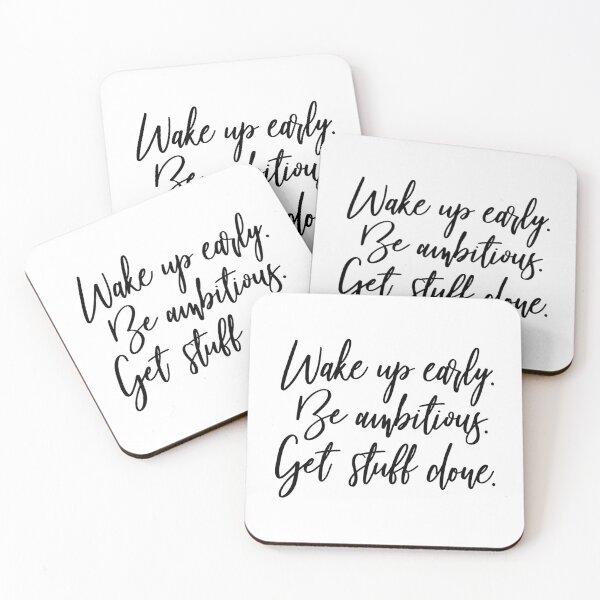 Wake up early.
Be
Wake up early.
Be ambitious.
Get stuff done.
Wake up early.
Be ambitious.
Get stuff
Wake up early.
Be ambitious.
Get stuff done.